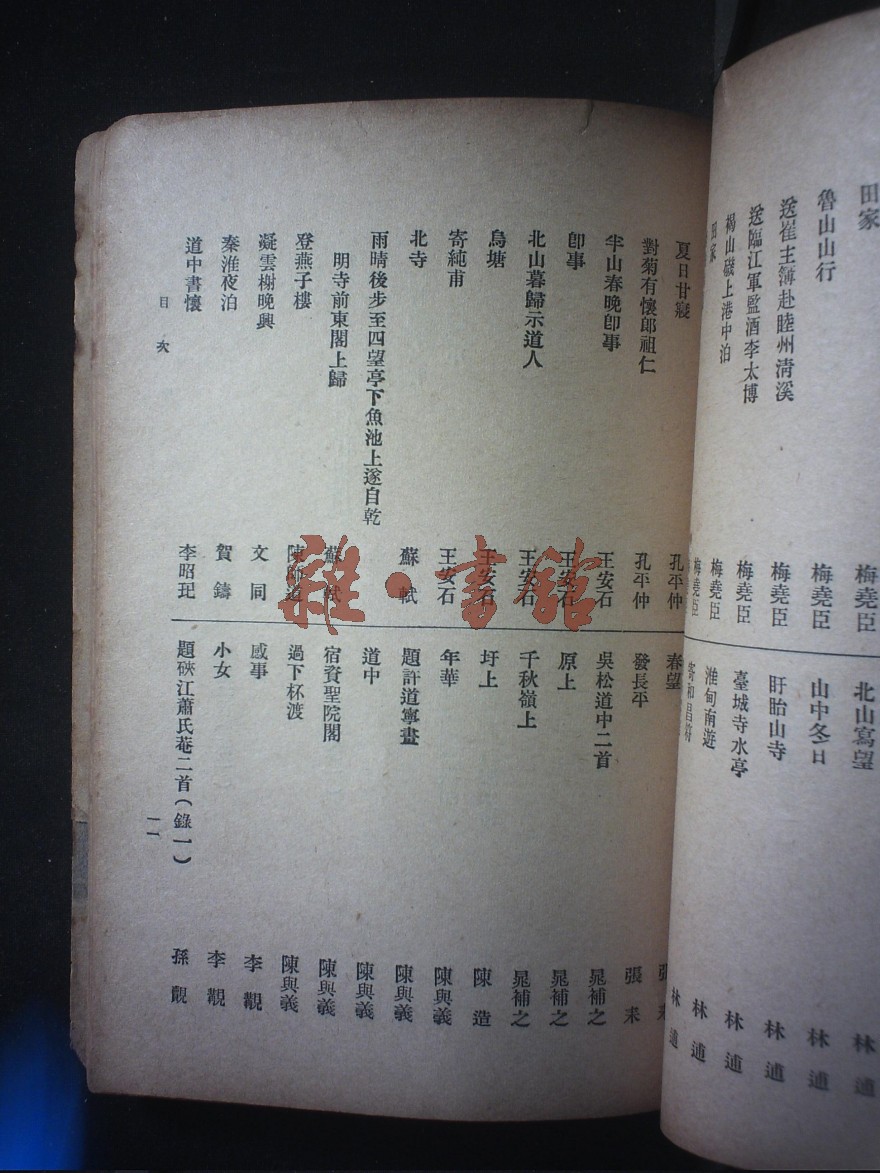 田家 梅堯臣
魯山山行 梅堯臣
送崔主簿赴睦州清溪 梅堯臣
送臨江軍監酒李太博 梅堯臣
褐山磯上港中泊 梅堯臣
田家 梅堯臣
北山寫望 林逋
山中冬日 林逋
盱眙山寺 林逋
臺城寺水亭 林逋
淮甸南遊 林逋
寄和昌符 林逋
夏日甘寢 孔平仲
對菊有懷郎祖仁 孔平仲
半山春晚卽事 王安石
卽事 王安石
北山暮歸示道人 王安石
烏塘 王安石
寄純甫 王安石
北寺 蘇軾
雨晴後步至四望亭下魚池上遂自乾
明寺前東閣上歸 蘇軾
登燕子樓 陳師道
凝雲榭晚興 文同
秦淮夜泊 賀鑄
道中書懷 李昭玘
春望 張耒
發長平 張耒
吳松道中二首 晁補之
原上 晁補之
千秋嶺上 晁補之
圩上 陳造
年華 陳與義
題許道寧畫 陳與義
道中 陳與義
宿資聖院閣 陳與義
過下杯渡 陳與義
感事 李覯
小女 李覯
題硤江蕭氏菴二首(錄一) 孫覿
目次
一一
雜·書館